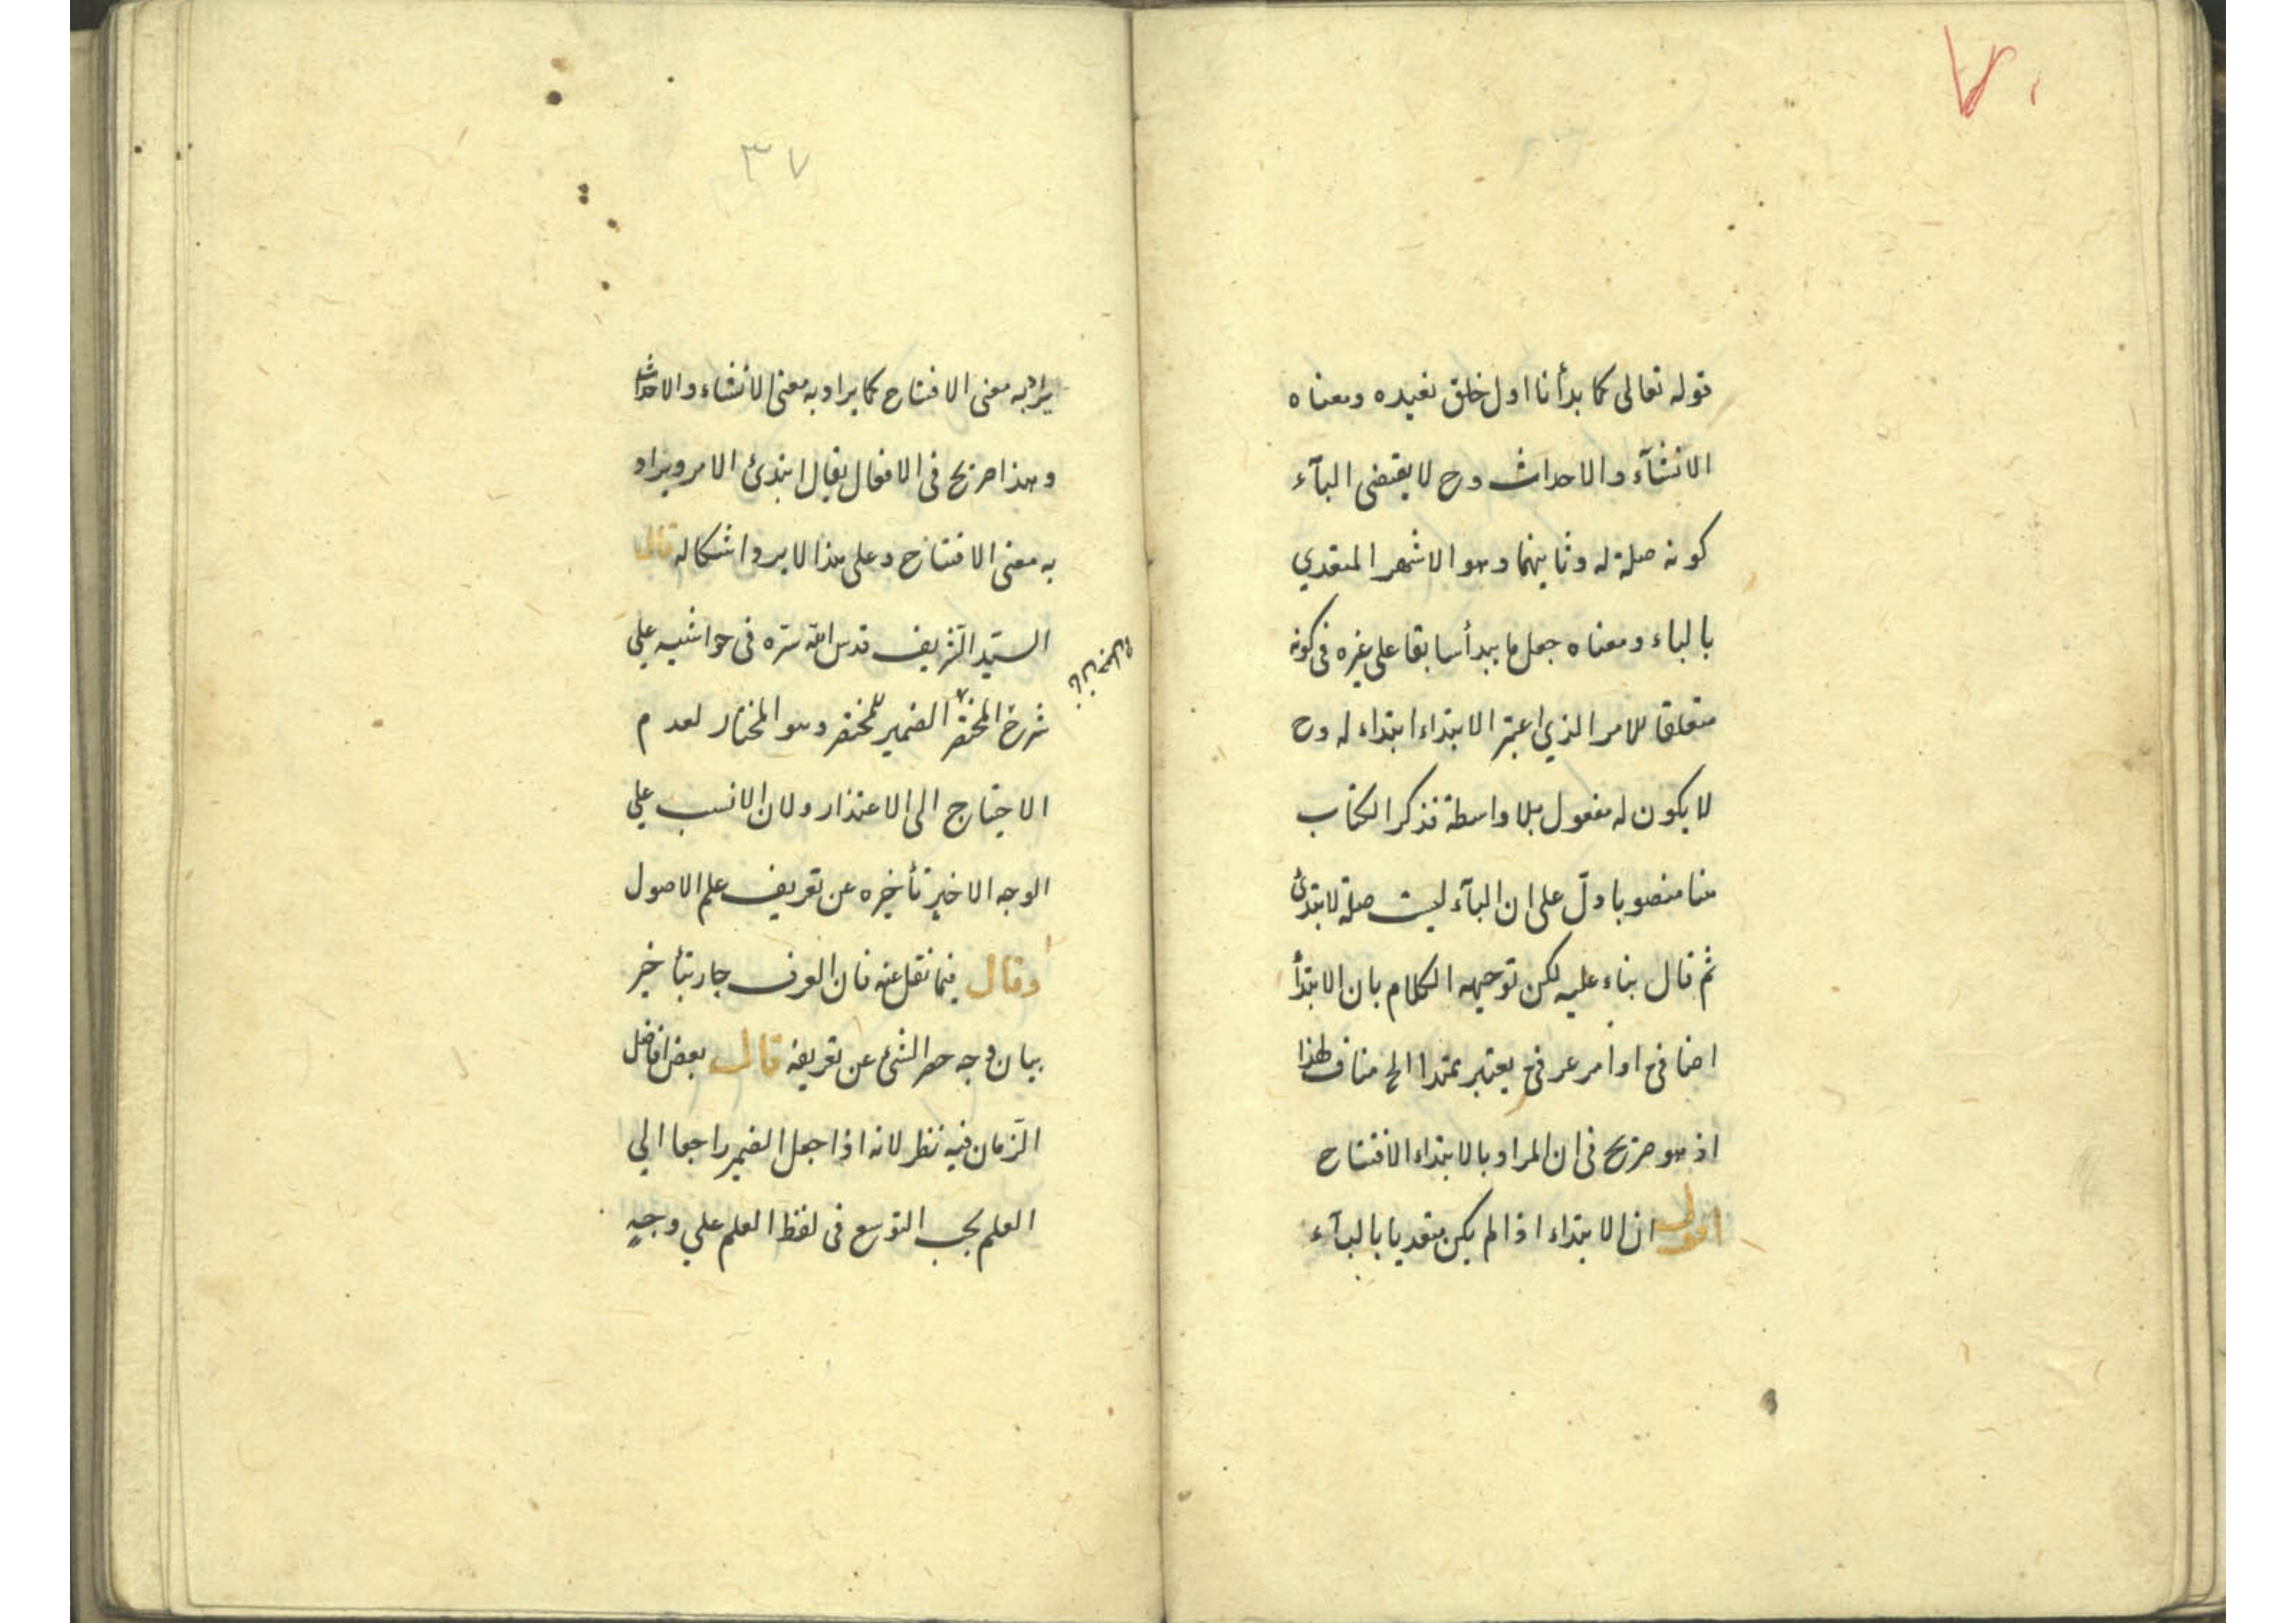 ٧٠
قوله تعالى كما بدأنا اول خلق نعيده ومعناه
الانشآء والاحداث وح لا يقتضى البآء
كونه صلة له وثانيهما وهو الاشهر المتعدي
بالباء ومعناه جعل ما يبدأ سابقا على غيره فى كونه
متعلقا للامر الذي اعتبر الابتداء ابتداء له وح
لا يكون له مفعول بلا واسطة فذكر الكتاب
هنا منصوبا دلّ على ان البآء ليست صلة لابتدئ
ثم قال بناء عليه لكن توجيهه الكلام بان الابتدأ
اضافى او امر عرفى يعتبر ممتدا الخ مناف لهذا
اذ هو صريح فى ان المراد بالابتداء الافتتاح
اقول ان الابتداء اذا لم يكن متعديا بالبآء
٣٧
يراد به معنى الافتتاح كما يراد به معنى الانشاء والاحداث
وهذا صريح فى الافعال يقال ابتدئ الامر ويراد
به معنى الافتتاح وعلى هذا لا يرد اشكاله قال
السيّد الشّريف قدس الله سرّه فى حواشيه علي
شرح المختصر الضمير للمختصر وهو المختار لعدم
الاحتياج الى الاعتذار ولان الانسب علي
الوجه الاخير تأخيره عن تعريف علم الاصول
وقال فيما نقل عنه فان العرف جار بتأخير
بيان وجه حصر الشئ عن تعريفه قال بعض افاضل
الزّمان فيه نظر لانه اذا جعل الضمير راجعا الي
العلم يجب التوسع فى لفظ العلم علي وجهٍ